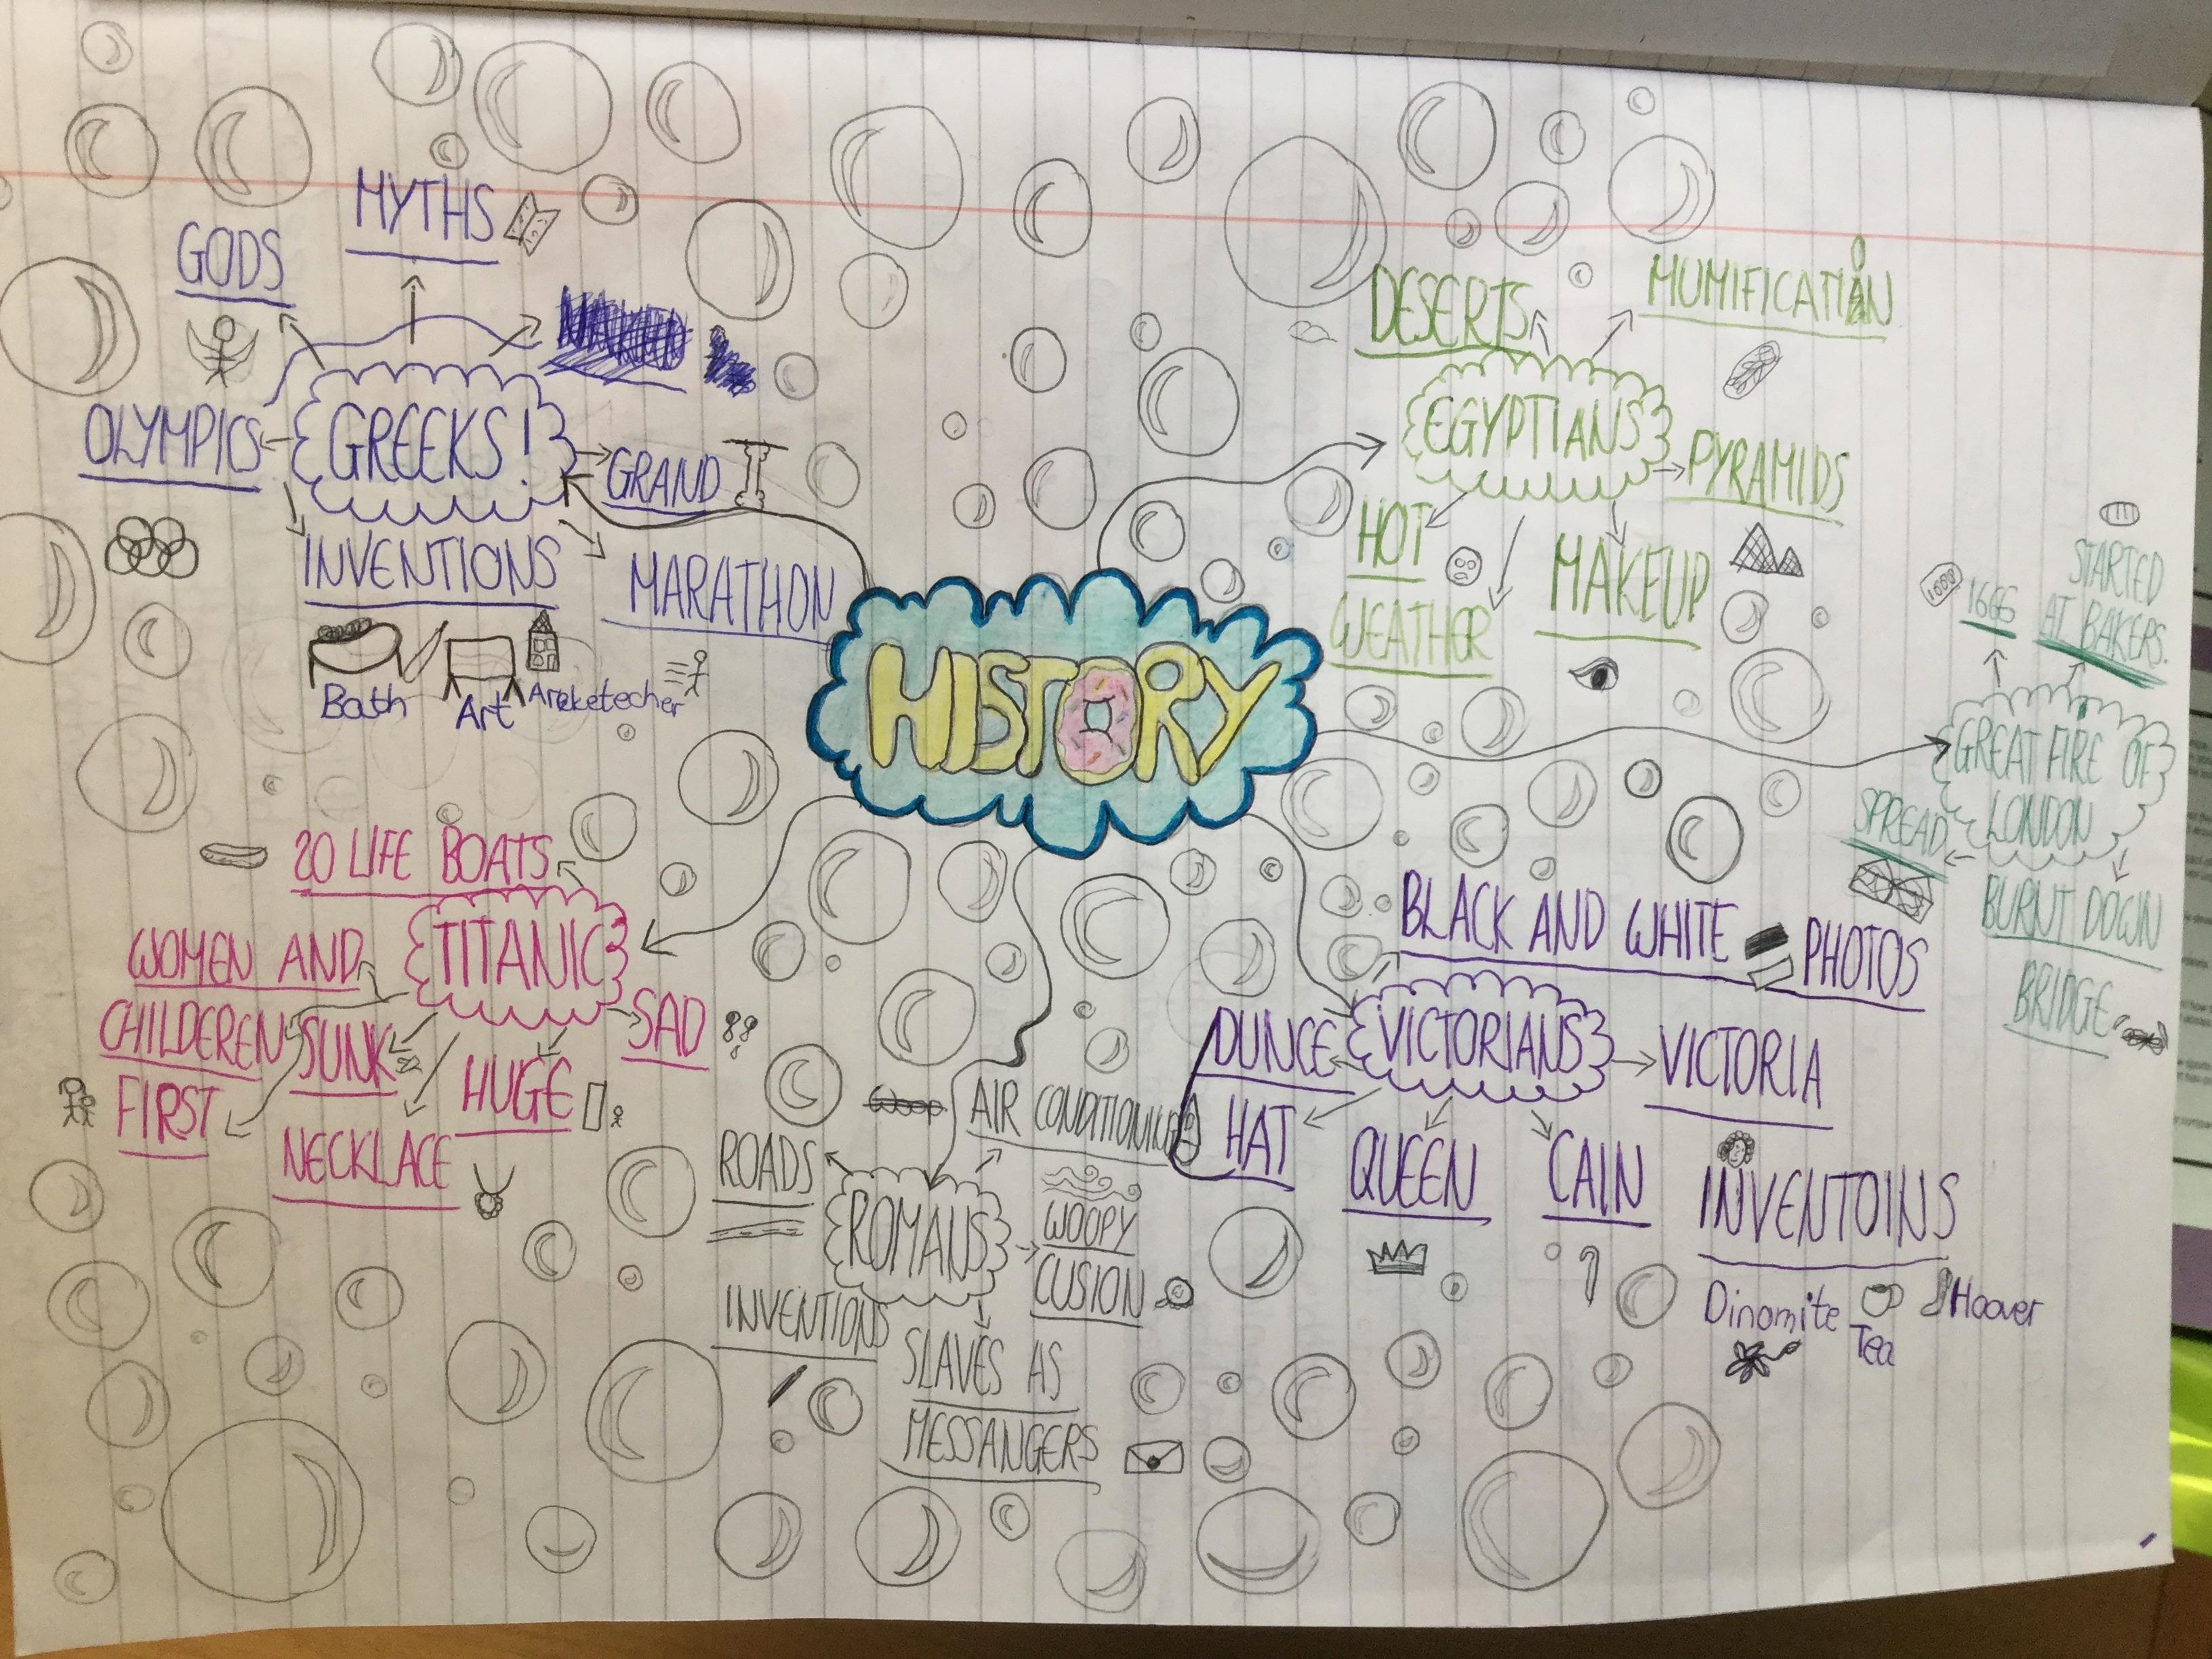 HISTORY
GREEKS!
GODS
MYTHS
OLYMPICS
GRAND
INVENTIONS
MARATHON
Bath
Art
EGYPTIANS
DESERTS
MUMIFICATION
PYRAMIDS
HOT
WEATHER
MAKEUP
GREAT FIRE OF
LONDON
1666
STARTED
AT BAKERS.
SPREAD
BURNT DOWN
BRIDGE
TITANIC
20 LIFE BOATS
WOMEN AND
CHILDEREN
FIRST
SUNK
NECKLACE
HUGE
SAD
ROMANS
ROADS
AIR CONDITIONING
WOOPY
CUSION
INVENTIONS
SLAVES AS
MESSANGERS
VICTORIANS
BLACK AND WHITE PHOTOS
DUNCE
HAT
QUEEN
CAIN
VICTORIA
INVENTOINS
Dinamite
Tea
Hoover